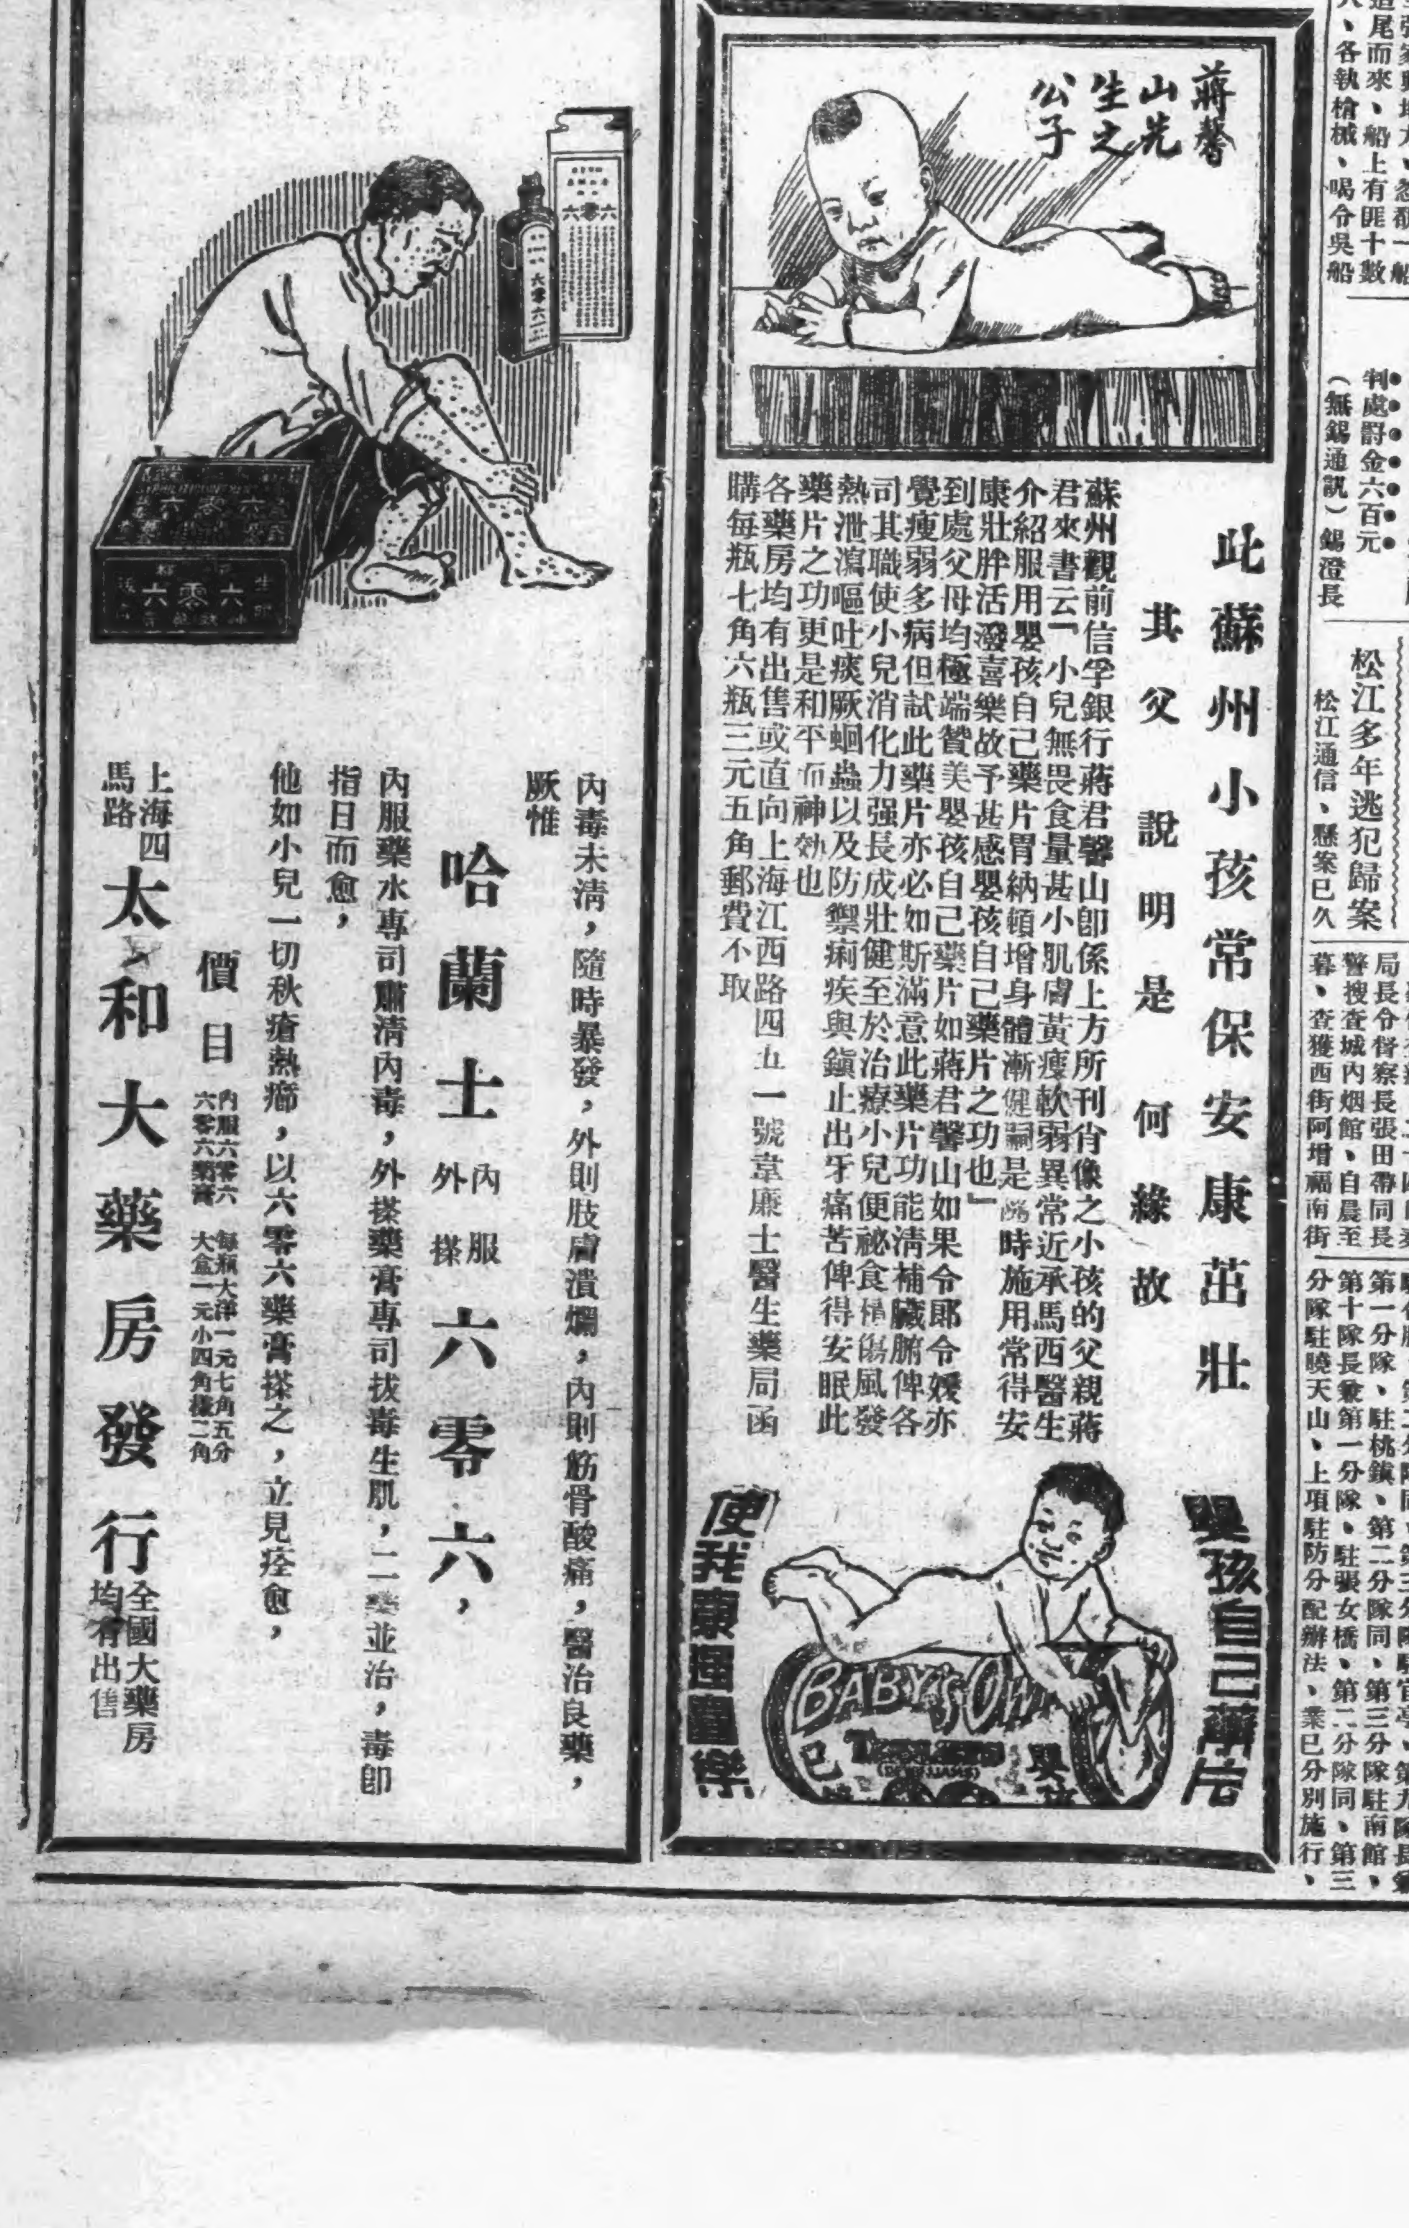 追尾而來、船上有匪十數
各執槍械、喝令吳船
判處罸金六百元
（無錫通訊）錫澄長
松江多年逃犯歸案
松江通信、懸案已久
局長令督察長張田帶同長
警搜查城內烟館、自晨至
暮、查獲西街阿增福南街
第一分隊、駐桃鎮、第二分隊同、第三分隊駐南館、
第十隊長兼第一分隊、駐張女橋、第二分隊同、第三
分隊駐曉天山、上項駐防分配辦法、業已分別施行、
蔣馨
山先
生之
公子
此蘇州小孩常保安康茁壯
其父說明是何緣故
蘇州觀前信孚銀行蔣君馨山卽係上方所刊肖像之小孩的父親蔣
君來書云「小兒無畏食量甚小肌膚黃瘦軟弱異常近承馬西醫生
介紹服用嬰孩自己藥片胃納頓增身體漸健嗣是隨時施用常得安
康壯胖活潑喜樂故予甚感嬰孩自己藥片之功也」
到處父母均極端贊美嬰孩自己藥片如蔣君馨山如果令郎令嫒亦
覺瘦弱多病但試此藥片亦必如斯滿意此藥片功能淸補臟腑俾各
司其職使小兒消化力强長成壯健至於治療小兒便祕食積傷風發
熱泄瀉嘔吐痰厥蛔蟲以及防禦痢疾與鎭止出牙痛苦俾得安眠此
藥片之功更是和平而神効也
各藥房均有出售或直向上海江西路四五一號韋廉士醫生藥局函
購每瓶七角六瓶三元五角郵費不取
嬰孩自己藥片
使我康強喜樂
BABY'S OWN
TABLETS
嬰孩
自己
六零六
六零六
六零六
六零六
內毒未淸，隨時暴發，外則肢膚潰爛，內則筋骨酸痛，醫治良藥，
厥惟
哈蘭士 內服 外搽 六零六，
內服藥水專司肅淸內毒，外搽藥膏專司拔毒生肌，二藥並治，毒卽
指日而愈，
他如小兒一切秋瘡熱癤，以六零六藥膏搽之，立見痊愈，
價目 內服六零六 每瓶大洋一元七角五分
六零六藥膏 大盒一元小四角樣二角
上海四馬路 太和大藥房發行 全國大藥房均有出售